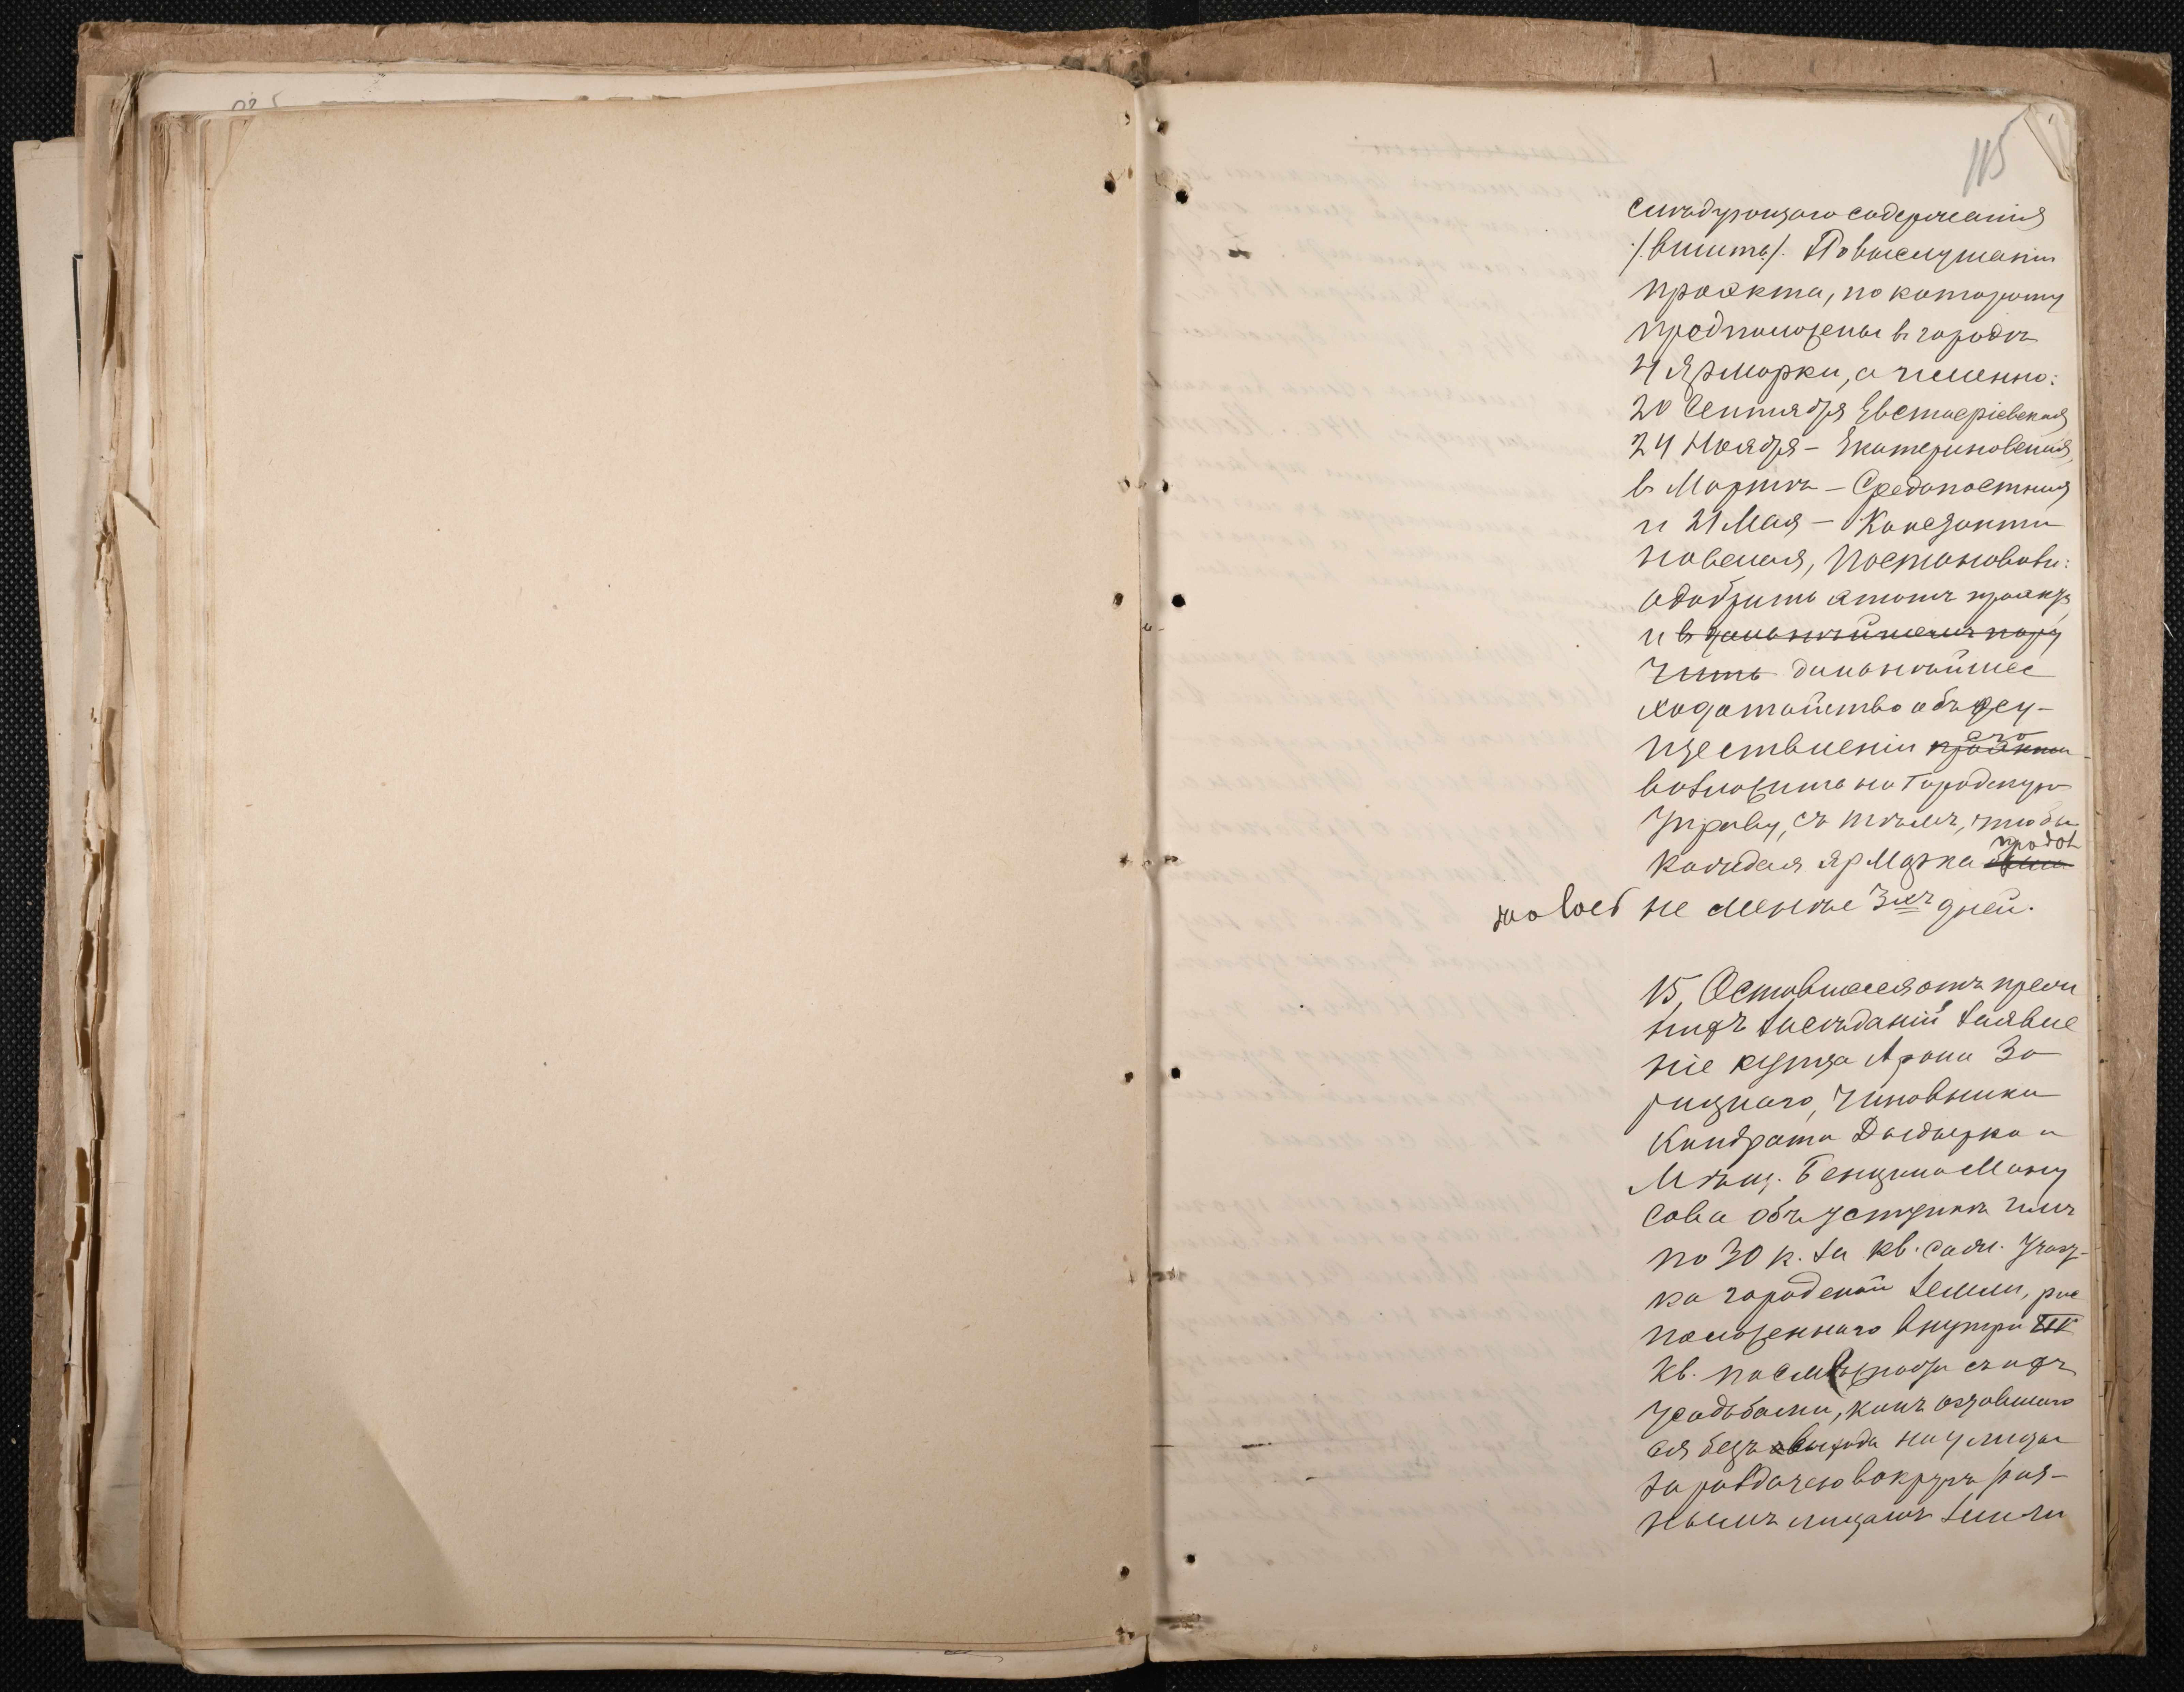 115
слѣдующаго содержанія
/вшить/. По выслушаніи
проэкта, по которому
предположены въ городѣ
4 Ярморки, а именно:
20 Сентября Евстафіевская
24 Ноября – Екатериновская,
въ Мартѣ – Средопостная
и 21 Мая – Константи
новская, Постановили:
одобрить этотъ проэктъ
и въ дальнѣйшемъ пору
чить дальнѣйшее
ходатайство объ осу-
ществленіи проэкта его
возложить на Городскую
Управу, съ тѣмъ, чтобы
каждая ярмарка продол
жалась не менѣе 3хъ дней.
15, Оставшееся отъ преж
нихъ засѣданій заявле
ніе купца Арона За
рицкаго, Чиновника
Кондрата Дыдырка и
Мѣщ. Бенціона Ману
сова объ уступкѣ имъ
по 30 к. за кв. саж. участ-
ка городской земли, рас
положеннаго внутри
кв. по смѣжности съ ихъ
усадьбами, какъ оставшаго
ся безъ выхода на улицы
за раздачею вокругъ раз-
нымъ лицамъ земли